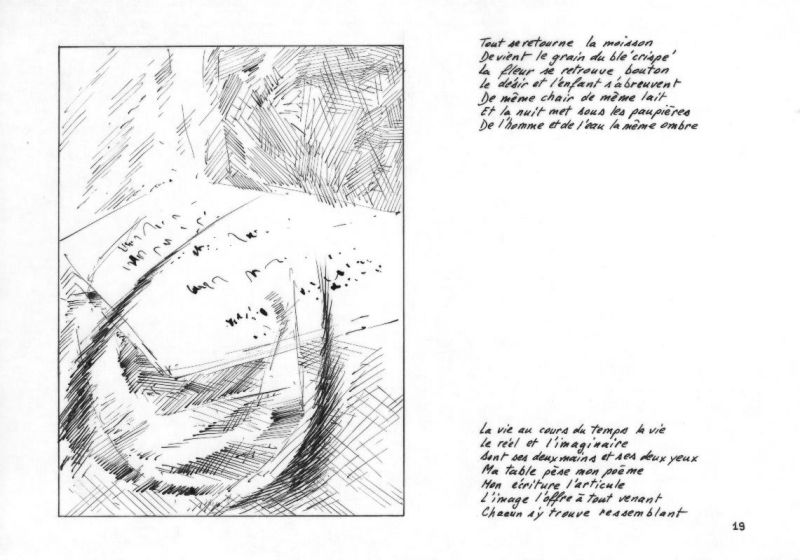 Tout se retourne la moisson
Devient le grain du blé crispé
La fleur se retrouve bouton
Le désir et l'enfant s'abreuvent
De même chair de même lait
Et la nuit met sous les paupières
De l'homme et de l'eau la même ombre
La vie au cours du temps la vie
Le réel et l'imaginaire
Sont ses deux mains et ses deux yeux
Ma table pèse mon poème
Mon écriture l'articule
L'image l'offre à tout venant
Chacun s'y trouve ressemblant
19